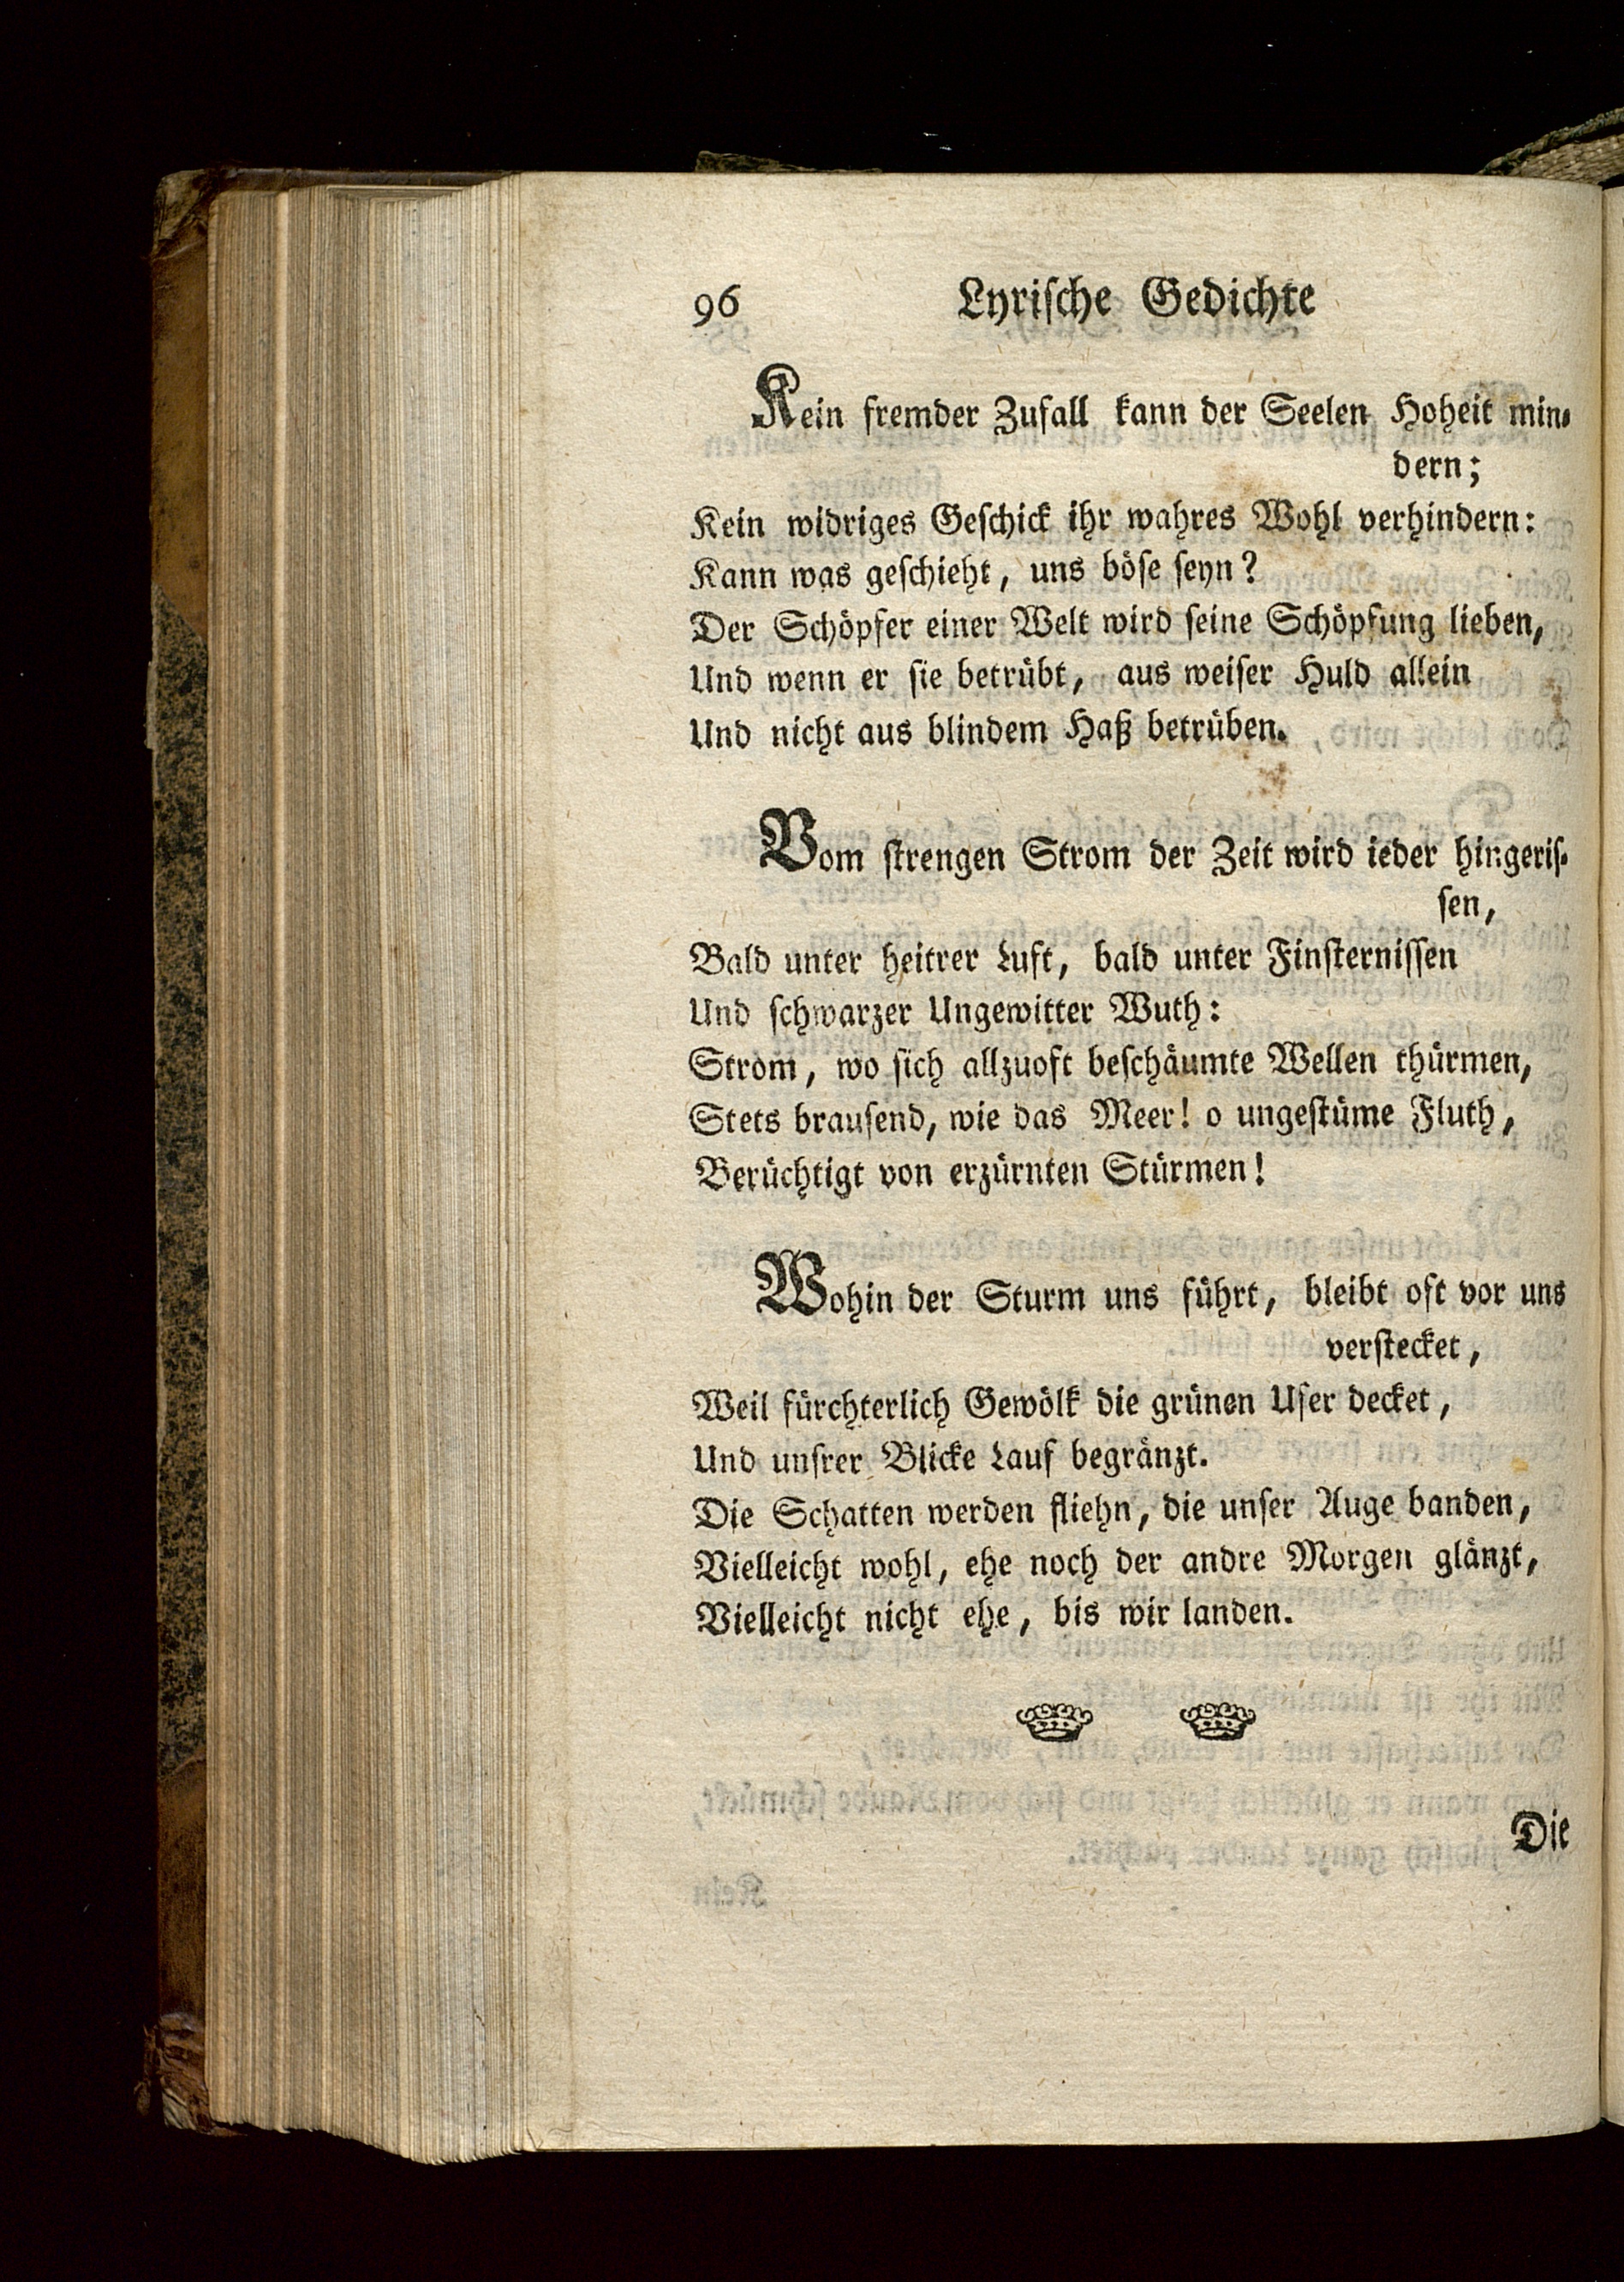 96 Lyrische Gedichte
Kein fremder Zufall kann der Seelen Hoheit min-
dern;
Kein widriges Geschick ihr wahres Wohl verhindern:
Kann was geschieht, uns böse seyn?
Der Schöpfer einer Welt wird seine Schöpfung lieben,
Und wenn er sie betrübt, aus weiser Huld allein
Und nicht aus blindem Haß betrüben.
Vom strengen Strom der Zeit wird ieder hingeris-
sen,
Bald unter heitrer Luft, bald unter Finsternissen
Und schwarzer Ungewitter Wuth:
Strom, wo sich allzuoft beschäumte Wellen thürmen,
Stets brausend, wie das Meer! o ungestüme Fluth,
Berüchtigt von erzürnten Stürmen!
Wohin der Sturm uns führt, bleibt oft vor uns
verstecket,
Weil fürchterlich Gewölk die grünen Ufer decket,
Und unsrer Blicke Lauf begränzt.
Die Schatten werden fliehn, die unser Auge banden,
Vielleicht wohl, ehe noch der andre Morgen glänzt,
Vielleicht nicht ehe, bis wir landen.
Die